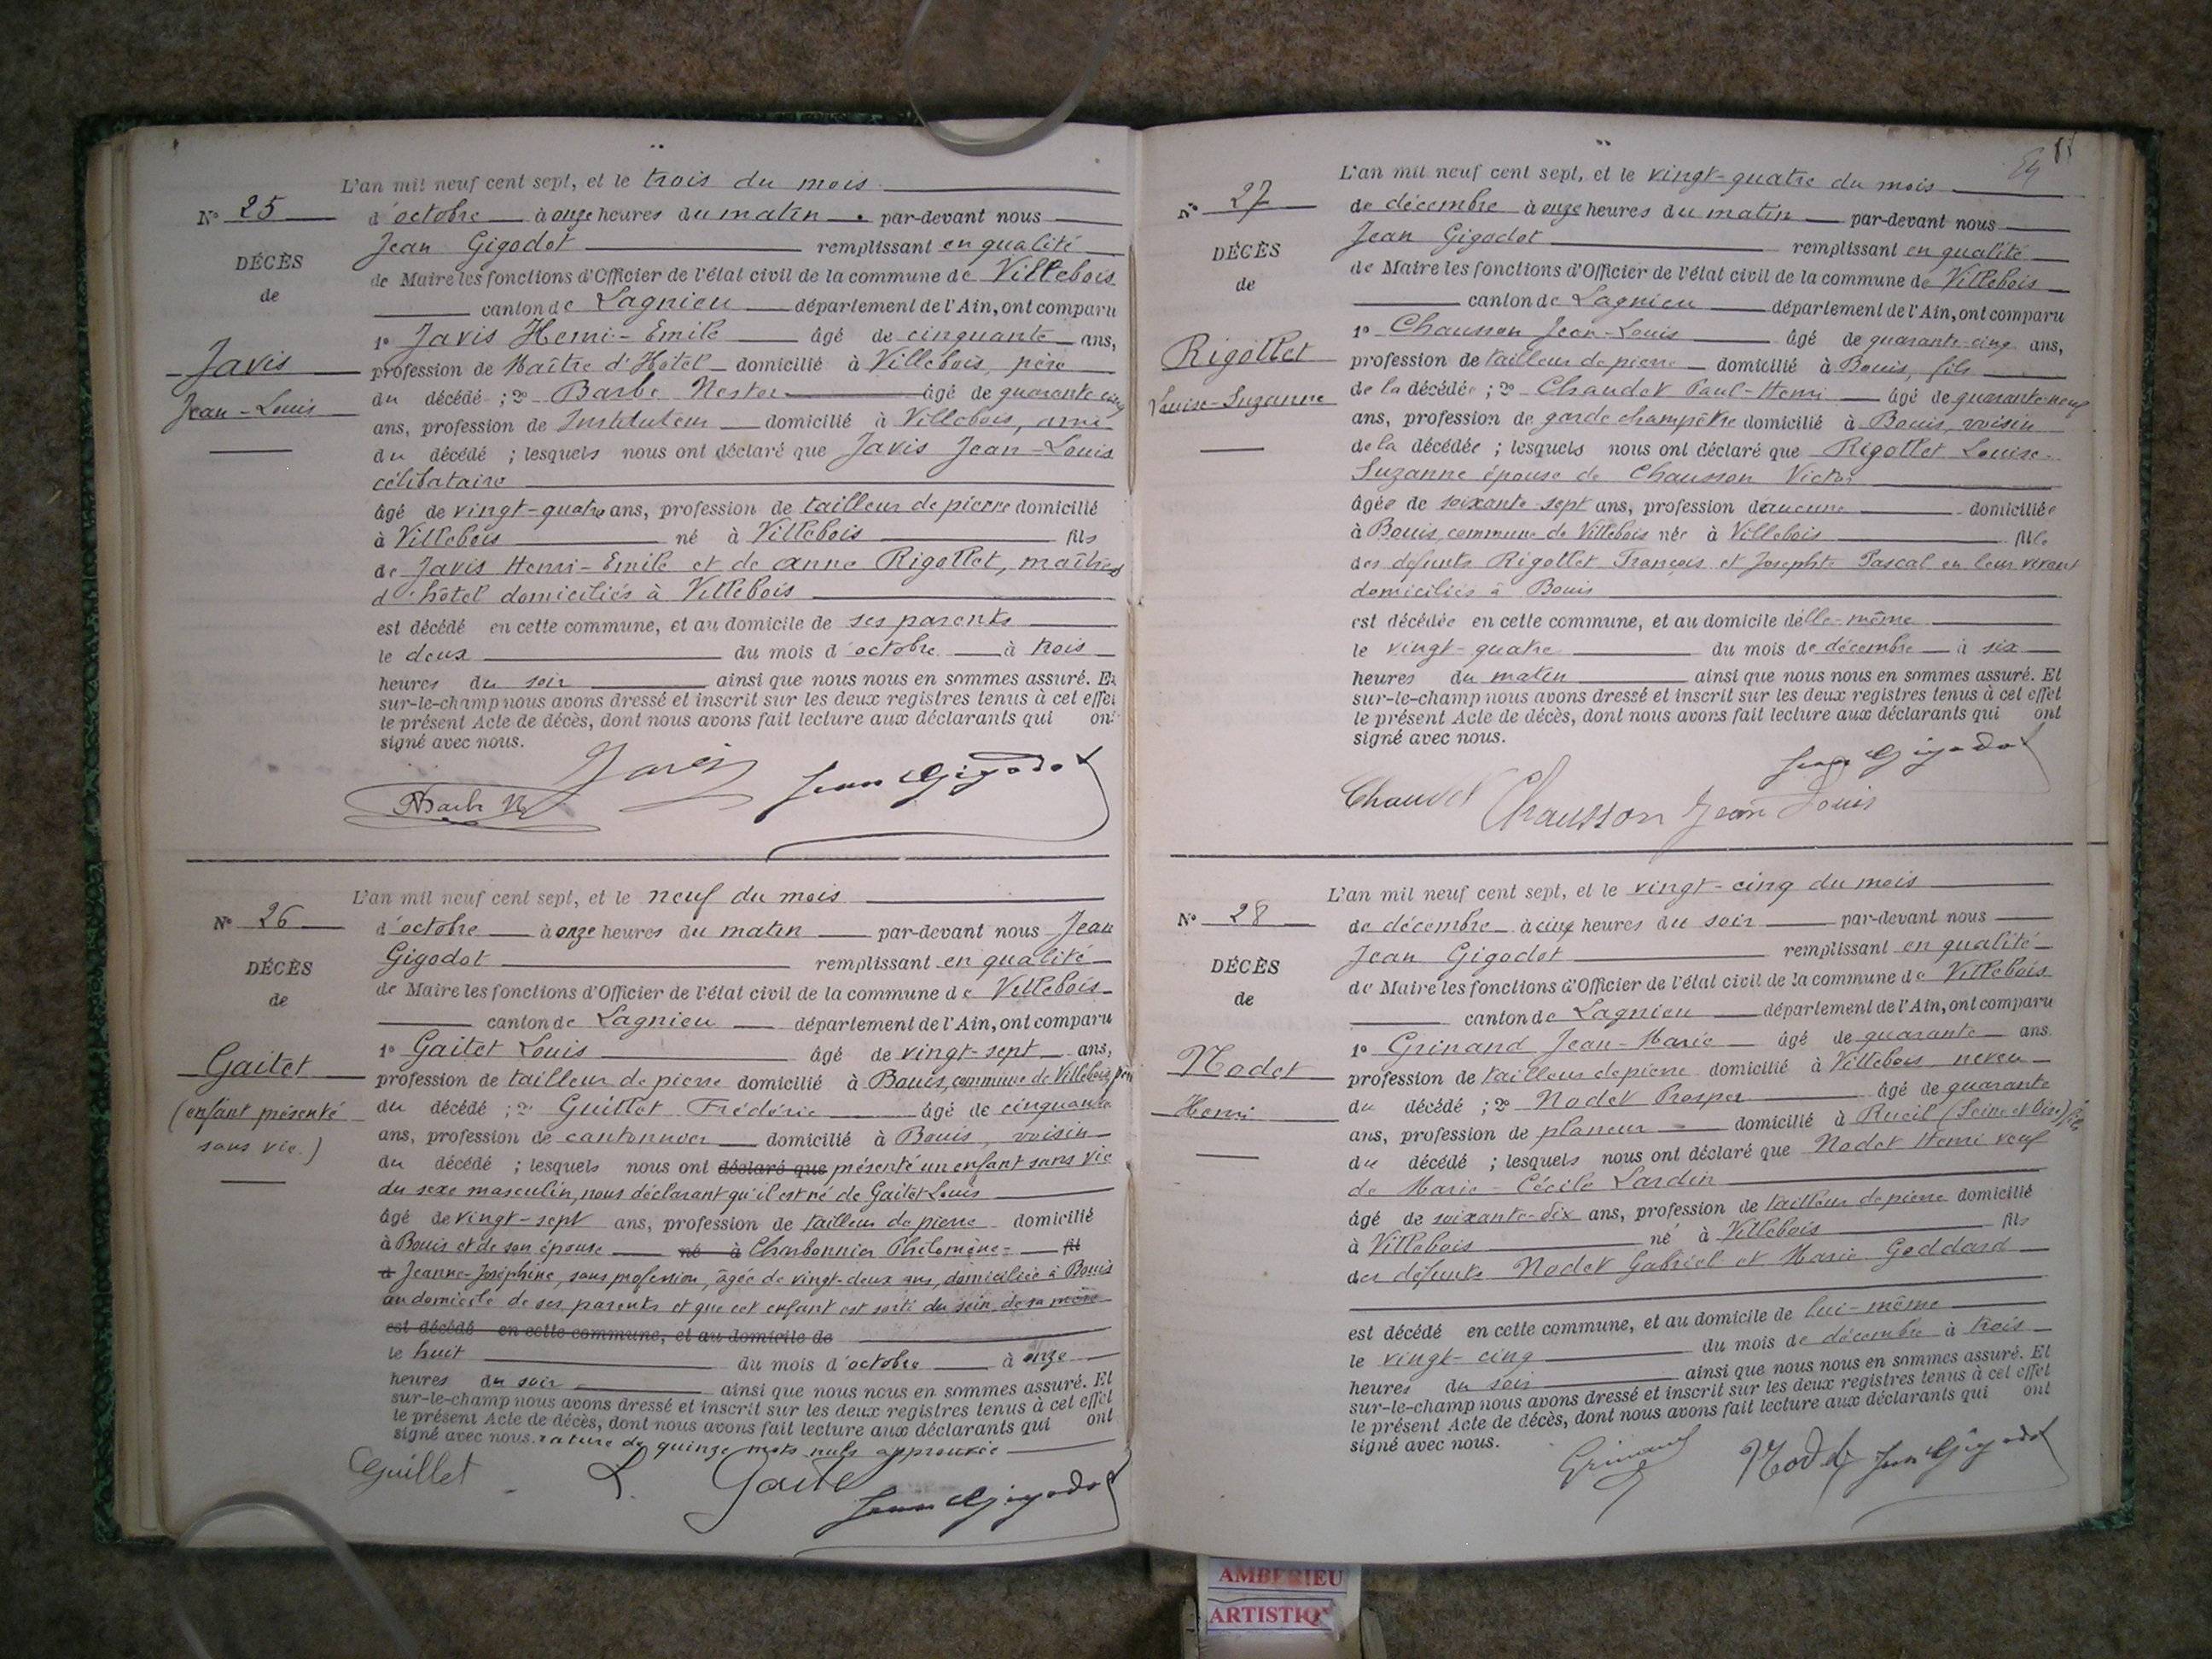 L'an mil neuf cent sept, et le trois du mois
N° 25
d'octobre à onze heures du matin par-devant nous
Jean Gigodot remplissant en qualité
DÉCÈS
de Maire les fonctions d'Officier de l'état civil de la commune de Villebois
de
canton de Lagnieu département de l'Ain, ont comparu
1° Javis Henri-Emile âgé de cinquante ans,
Javis
profession de Maître d'Hôtel domicilié à Villebois, père
du décédé ; 2° Barbe Nestor âgé de quarante-cinq
Jean-Louis
ans, profession de Instituteur domicilié à Villebois, ami
du décédé ; lesquels nous ont déclaré que Javis Jean-Louis
célibataire
âgé de vingt-quatre ans, profession de tailleur de pierre domicilié
à Villebois né à Villebois fils
de Javis Henri-Emile et de anne Rigollet, maîtres
d'hôtel domiciliés à Villebois
est décédé en cette commune, et au domicile de ses parents
le deux du mois d'octobre à trois
heures du soir ainsi que nous nous en sommes assuré. Et
sur-le-champ nous avons dressé et inscrit sur les deux registres tenus à cet effet
le présent Acte de décès, dont nous avons fait lecture aux déclarants qui ont
signé avec nous.
Javis
Jean Gigodot
Barbe N
L'an mil neuf cent sept, et le neuf du mois
N° 26
d'octobre à onze heures du matin par-devant nous Jean
Gigodot remplissant en qualité
DÉCÈS
de Maire les fonctions d'Officier de l'état civil de la commune de Villebois
de
canton de Lagnieu département de l'Ain, ont comparu
1° Gaitet Louis âgé de vingt-sept ans,
Gaitet
profession de tailleur de pierre domicilié à Bouis, commune de Villebois, père
(enfant présenté
du décédé ; 2° Guillet Frédéric âgé de cinquante
sans vie.)
ans, profession de cantonnier domicilié à Bouis, voisin
du décédé ; lesquels nous ont déclaré que présenté un enfant sans vie
du sexe masculin, nous déclarant qu'il est né de Gaitet Louis
âgé de vingt-sept ans, profession de tailleur de pierre domicilié
à Bouis et de son épouse né à Charbonnier Philomène- fil
d Jeanne-Joséphine, sans profession, âgée de vingt-deux ans, domiciliée à Bouis
au domicile de ses parents et que cet enfant est sorti du sein de sa mère
est décédé en cette commune, et au domicile de
le huit du mois d'octobre à onze
heures du soir ainsi que nous nous en sommes assuré. Et
sur-le-champ nous avons dressé et inscrit sur les deux registres tenus à cet effet
le présent Acte de décès, dont nous avons fait lecture aux déclarants qui ont
signé avec nous. rature de quinze mots nuls approuvée
Guillet L. Gaitet
Jean Gigodot
L'an mil neuf cent sept, et le vingt-quatre du mois
N° 27
de décembre à onze heures du matin par-devant nous
Jean Gigodot remplissant en qualité
DÉCÈS
de Maire les fonctions d'Officier de l'état civil de la commune de Villebois
de
canton de Lagnieu département de l'Ain, ont comparu
1° Chausson Jean-Louis âgé de quarante-cinq ans,
Rigollet
profession de tailleur de pierre domicilié à Bouis, fils
de la décédée ; 2° Chaudet Paul-Henri âgé de quarante-neuf
Louise-Suzanne
ans, profession de garde champêtre domicilié à Bouis, voisin
de la décédée ; lesquels nous ont déclaré que Rigollet Louise-
Suzanne épouse de Chausson Victor
âgée de soixante-sept ans, profession d'aucune domiciliée
à Bouis, commune de Villebois née à Villebois fille
des défunts Rigollet François et Josephte Pascal en leur vivant
domiciliés à Bouis
est décédée en cette commune, et au domicile d'elle-même
le vingt-quatre du mois de décembre à six
heures du matin ainsi que nous nous en sommes assuré. Et
sur-le-champ nous avons dressé et inscrit sur les deux registres tenus à cet effet
le présent Acte de décès, dont nous avons fait lecture aux déclarants qui ont
signé avec nous.
Jean Gigodot
Chaudet Chausson Jean Louis
L'an mil neuf cent sept, et le vingt-cinq du mois
N° 28
de décembre à cinq heures du soir par-devant nous
Jean Gigodot remplissant en qualité
DÉCÈS
de Maire les fonctions d'Officier de l'état civil de la commune de Villebois
de
canton de Lagnieu département de l'Ain, ont comparu
1° Grinand Jean-Marie âgé de quarante ans.
Nodet
profession de tailleur de pierre domicilié à Villebois neveu
du décédé ; 2° Nodet Prosper âgé de quarante
Henri
ans, profession de planeur domicilié à Rueil (Seine et Oise) fils
du décédé ; lesquels nous ont déclaré que Nodet Henri veuf
de Marie-Cécile Lardin
âgé de soixante-dix ans, profession de tailleur de pierre domicilié
à Villebois né à Villebois fils
des défunts Nodet Gabriel et Marie Goddard
est décédé en cette commune, et au domicile de lui-même
le vingt-cinq du mois de décembre à trois
heures du soir ainsi que nous nous en sommes assuré. Et
sur-le-champ nous avons dressé et inscrit sur les deux registres tenus à cet effet
le présent Acte de décès, dont nous avons fait lecture aux déclarants qui ont
signé avec nous.
Grinand Nodet Jean Gigodot
AMBERIEU
ARTISTIQ